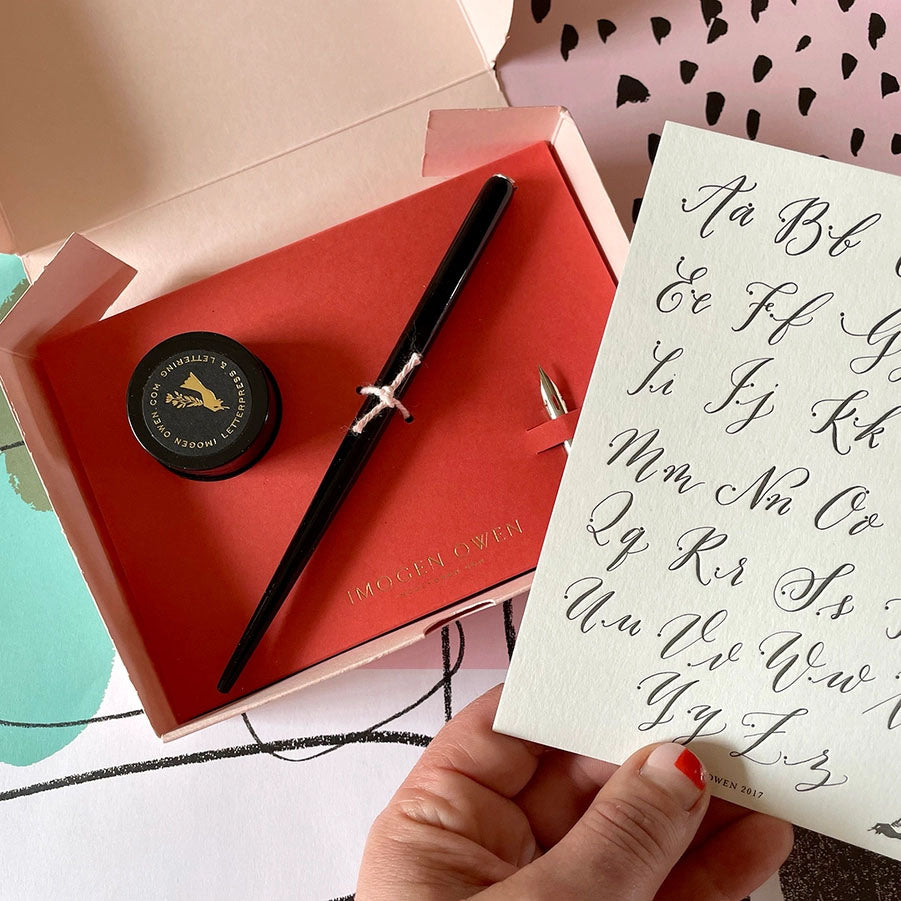 IMOGENOWEN.COM
LETTERPRESS & LETTERING
IMOGEN OWEN
Aa Bb
Ee Ff G
Ii Jj Kk
Mm Nn Oo
Qq Rr Ss
Uu Vv Ww
Yy Zz
OWEN 2017